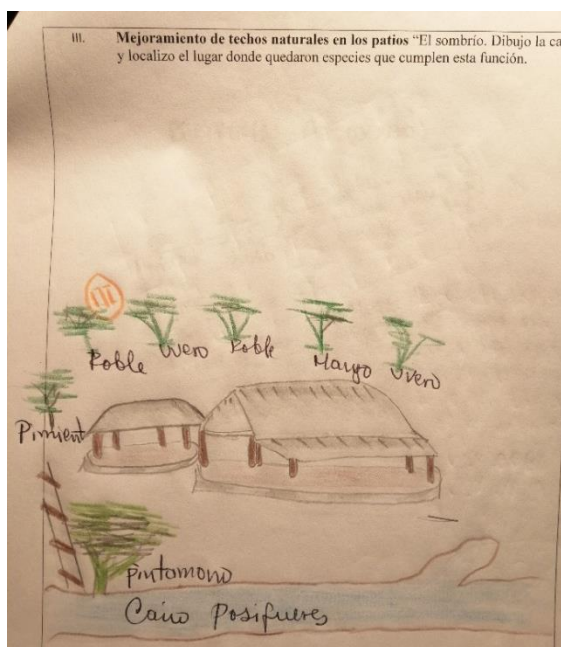 III. Mejoramiento de techos naturales en los patios “El sombrío. Dibujo la ca
y localizo el lugar donde quedaron especies que cumplen esta función.
III
Roble Uvero Roble Mango Uvero
Pimient
Pintamono
Caño